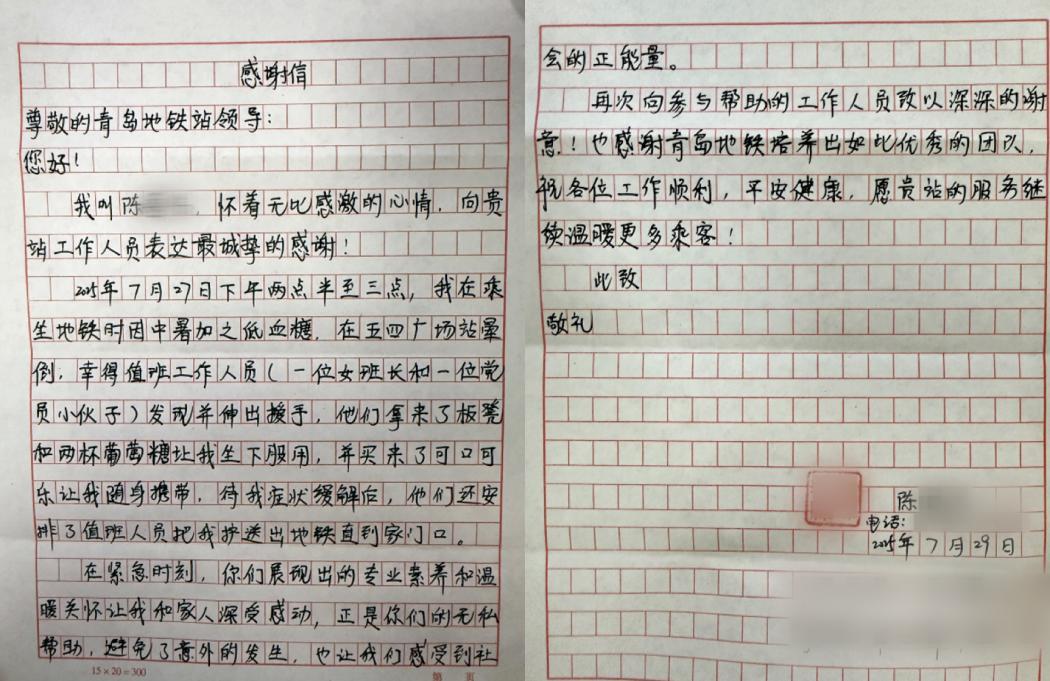 感谢信
尊敬的青岛地铁站领导：
您好！
我叫陈 ，怀着无比感激的心情，向贵
站工作人员表达最诚挚的感谢！
2025年7月27日下午两点半至三点，我在乘
坐地铁时因中暑加之低血糖，在五四广场站晕
倒，幸得值班工作人员（一位女班长和一位党
员小伙子）发现并伸出援手，他们拿来了板凳
和两杯葡萄糖让我坐下服用，并买来了可口可
乐让我随身携带，待我症状缓解后，他们还安
排了值班人员把我护送出地铁直到家门口。
在紧急时刻，你们展现出的专业素养和温
暖关怀让我和家人深受感动，正是你们的无私
帮助，避免了意外的发生，也让我们感受到社
15×20=300
第 页
会的正能量。
再次向参与帮助的工作人员致以深深的谢
意！也感谢青岛地铁培养出如此优秀的团队，
祝各位工作顺利，平安健康，愿贵站的服务继
续温暖更多乘客！
此致
敬礼
陈
电话：
2025年7月29日